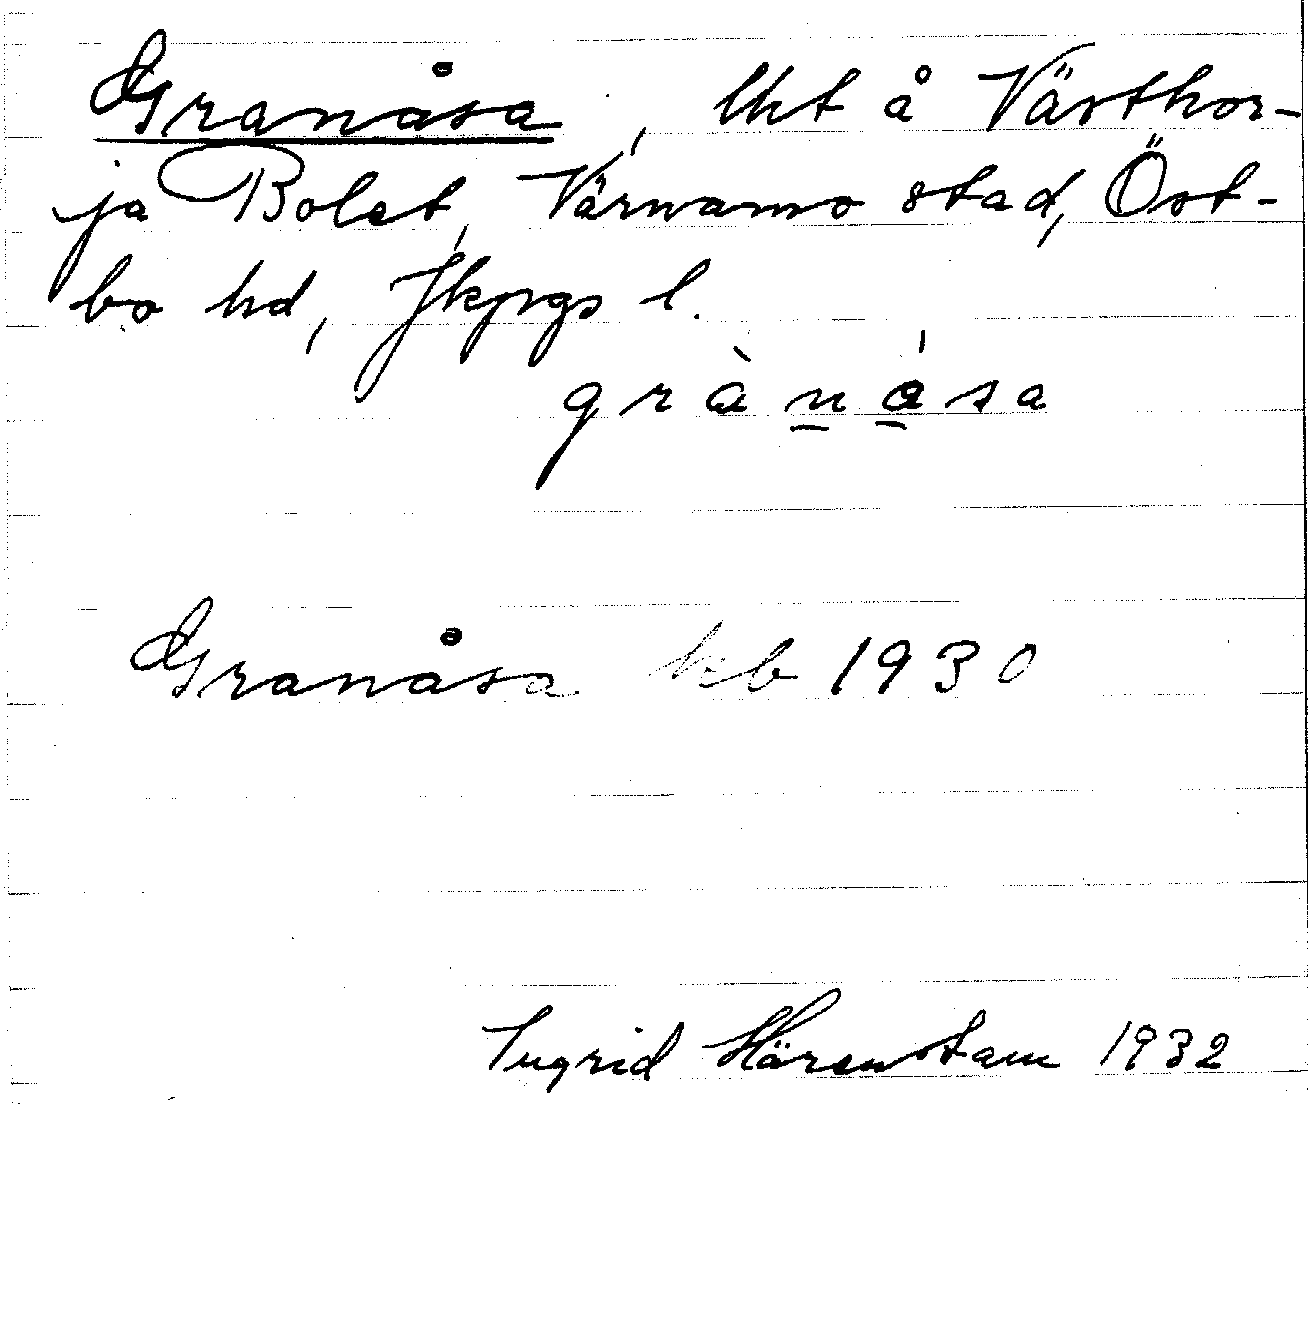 Granåsa, lht å Västhor-
ja Bolet, Värnamo stad, Öst-
bo hd, Jkpgs l.
grànása
Granåsa kb 1930
Ingrid Härenstam 1932